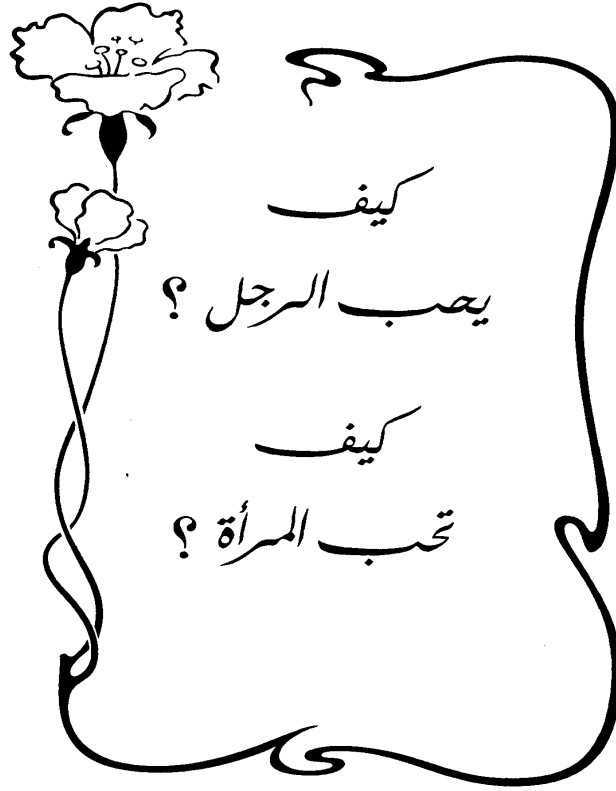 كيف
يحب الرجل ؟
كيف
تحب المرأة ؟